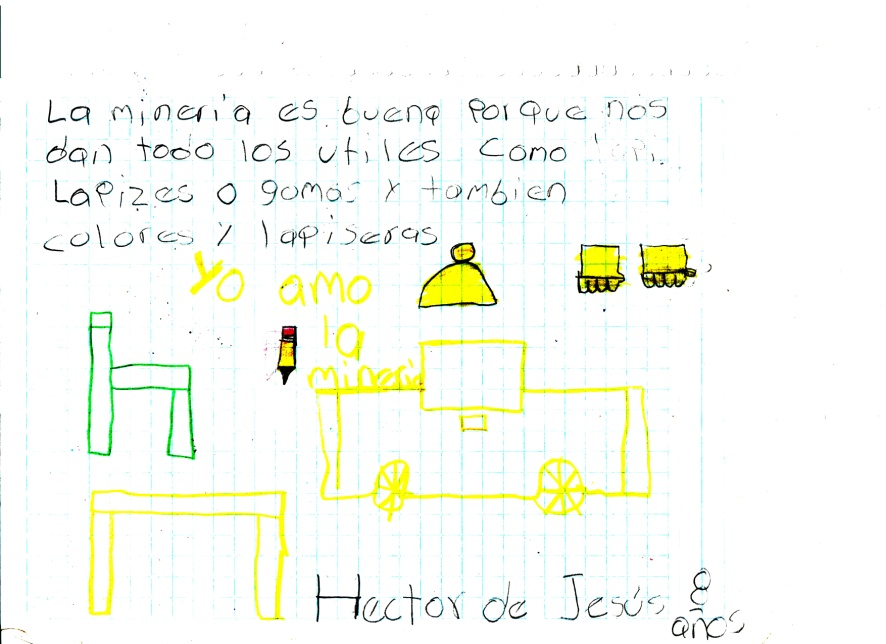 La minería es buena porque nos
dan todo los utiles como lapi
Lapizes o gomas y tambien
colores y lapiseras
Yo amo
la
mineria
Hector de Jesús 8
años